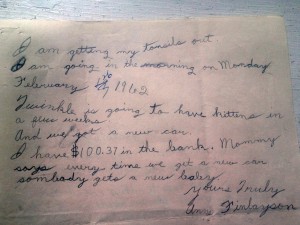 I am getting my tonsils out
I am going in the morning on Monday
February 26 1962
Twinkle is going to have kittens in
a few weeks
And we got a new car.
I have $100.37 in the bank. Mommy
says every time we get a new car
sombody gets a new baby
yours truly
Finlayson